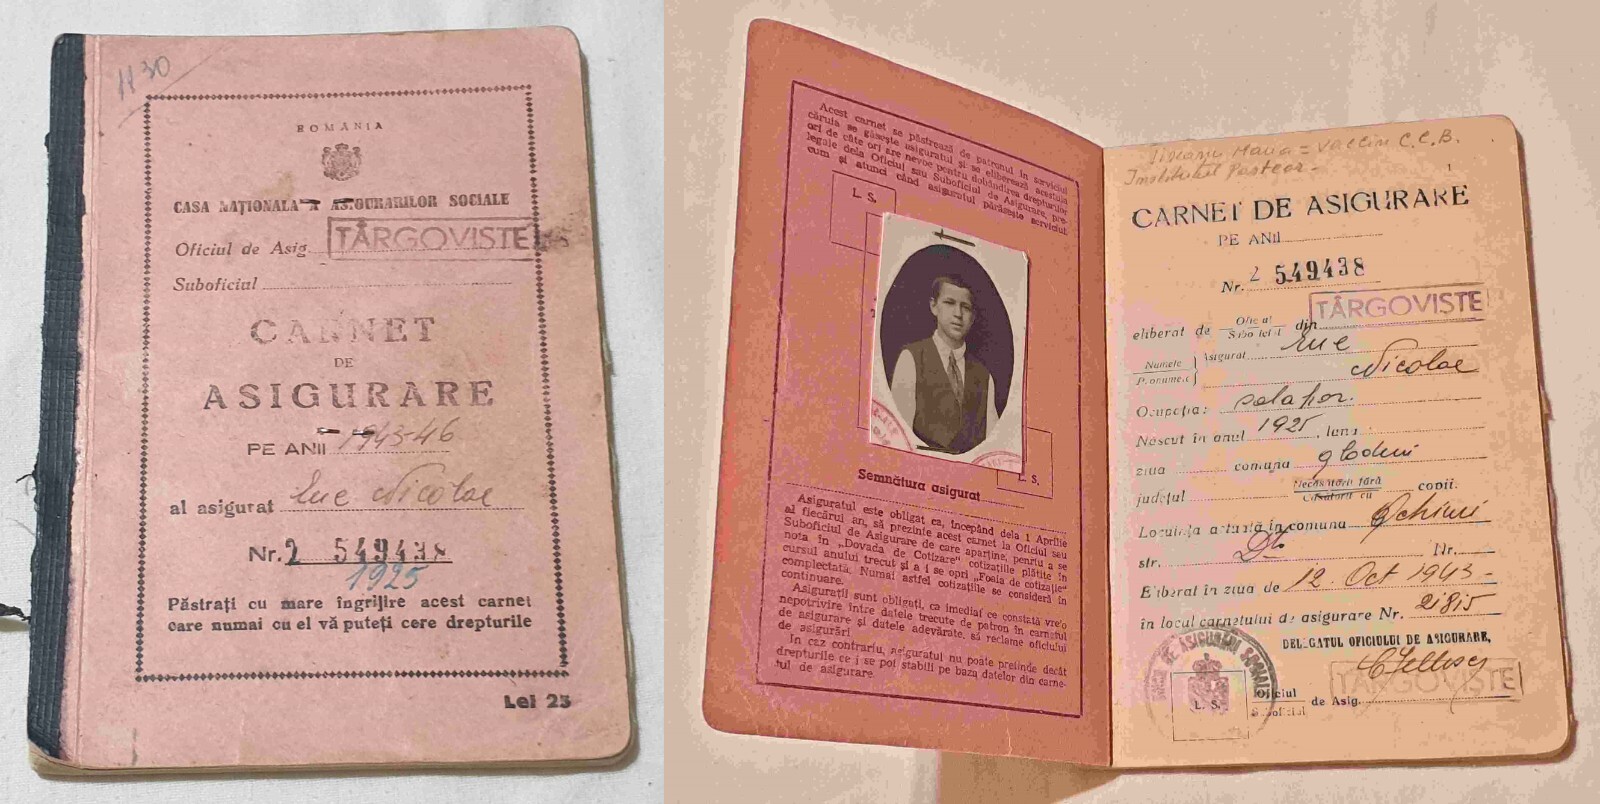 1130
ROMÂNIA
CASA NAȚIONALA A ASIGURARILOR SOCIALE
Oficiul de Asig. TÂRGOVISTE
Suboficiul
CARNET
DE
ASIGURARE
PE ANII 1943-46
al asigurat Nicolae
Nr. 2 549438
1925
Păstrați cu mare îngrijire acest carnet
care numai cu el vă puteți cere drepturile
Lei 25
Acest carnet se păstrează de patronul în serviciul
căruia se găsește asiguratul și se eliberează acestuia
ori de câte ori are nevoe pentru dobândirea drepturilor
legale dela Oficiul sau Suboficiul de Asigurare, pre-
cum și atunci când asiguratul părăsește serviciul.
L. S.
L. S.
Semnătura asigurat
Asiguratul este obligat ca, începând dela 1 Aprilie
al fiecărui an, să prezinte acest carnet la Oficiul sau
Suboficiul de Asigurare de care aparține, pentru a se
nota în „Dovada de Cotizare" cotizațiile plătite în
cursul anului trecut și a i se opri „Foaia de cotizație"
complectată. Numai astfel cotizațiile se consideră în
continuare.
Asigurații sunt obligați, ca imediat ce constată vre'o
nepotrivire între datele trecute de patron în carnetul
de asigurare și datele adevărate, să reclame oficiului
de asigurări
In caz contrariu, asiguratul nu poate pretinde decât
drepturile ce i se pot stabili pe baza datelor din carne-
tul de asigurare
Maria = Vaccin C.C.B.
Institutul Pasteur -
1
CARNET DE ASIGURARE
PE ANII
Nr. 2 549438
eliberat de Oficiul Suboficiul din TÂRGOVISTE
Numele Asigurat
Pronumele Nicolae
Ocupația: salahor
Născut în anul 1925, luna
ziua comuna Glodeni
județul Necăsătorit fără Căsătorit cu copii.
Locuința actuală în comuna
str. Nr.
Eliberat în ziua de 12 Oct 1943-
in locul carnetului de asigurare Nr. 21815
DELEGATUL OFICIULUI DE ASIGURARE,
TÂRGOVISTE
Oficiul
Suboficiul de Asig.
L. S.